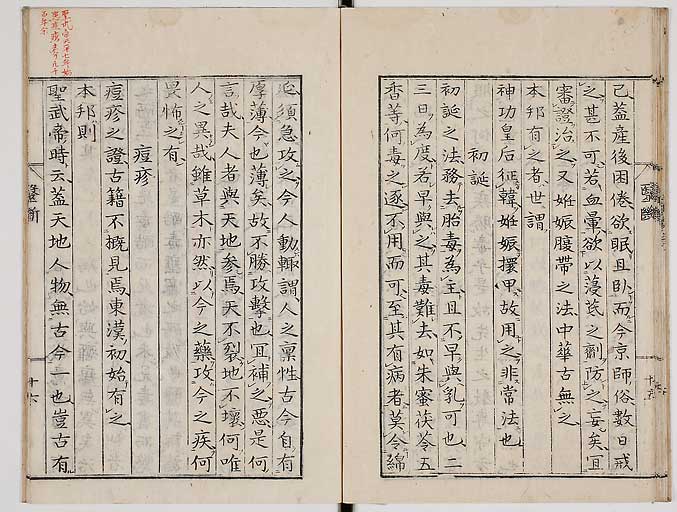 已蓋產後困倦欲眠且臥而今京師俗數日戒
之甚不可若血暈欲以蓐茋之劑防之妄矣宜
審證治之又姙娠腹帶之法中華古無之
本邦有之者世謂
神功皇后征韓姙娠擐甲故用之非常法也
初誕
初誕之法務去胎毒為主且不早與乳可也二
三日為度若早與之其毒難去如朱蜜茯苓五
香等何毒之逐不用而可至其有病者莫令綿
延須急攻之今人動輙謂人之稟性古今自有
厚薄今也薄矣故不勝攻擊也宜補之惡是何
言哉夫人者與天地參焉天不裂地不壞何唯
人之異哉雖草木亦然以今之藥攻今之疾何
畏怖之有
痘疹
痘疹之證古籍不概見焉東漢初始有之
本邦則
聖武帝時云蓋天地人物無古今一也豈古有
醫斷
十五
醫斷
十六